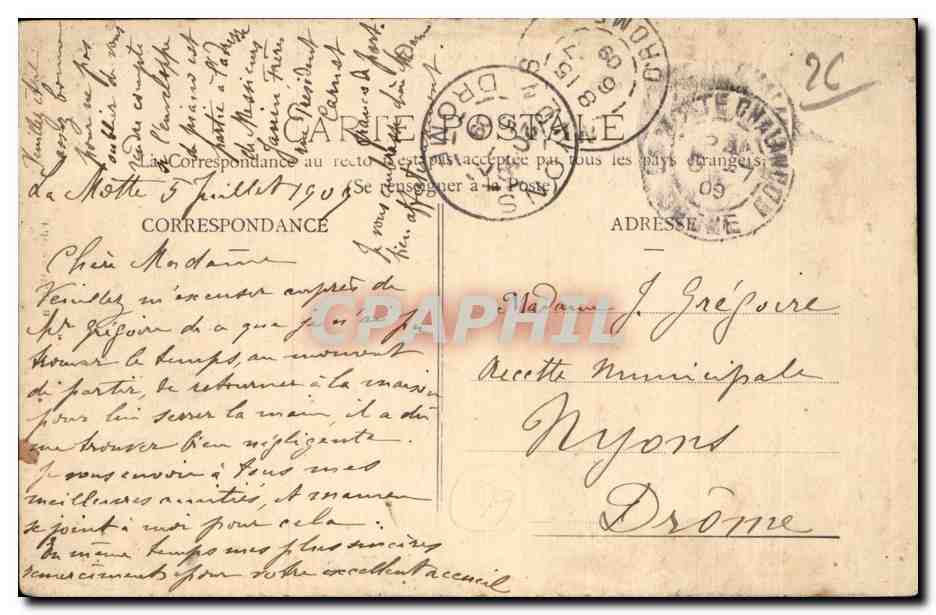 CARTE POSTALE
La Correspondance au recto n'est pas acceptée par tous les pays étrangers.
(Se renseigner à la Poste)
CORRESPONDANCE
ADRESSE
La Motte 5 Juillet 1909
Chère Madame
Veuillez m'excuser auprès de
Mr Grégoire de ce que je n'ai pu
trouver le temps, au moment
de partir, de retourner à la maison
pour lui serrer la main, il a dû
me trouver bien négligente.
Je vous envoie à tous mes
meilleures amitiés, et maman
se joint à moi pour cela.
En même temps mes plus sincères
remerciements pour votre excellent accueil
Veuillez être
assez bonne
pour ne pas
oublier de vous
rendre compte
si l'enveloppe
du piano est
partie à l'adresse
de Messieurs
Jamin Frères
rue Président
Carnot
franco de port
Je vous embrasse chère Madame
bien affectueusement
Madame J. Grégoire
Recette Municipale
Nyons
Drôme
NYONS
DROME
LA MOTTE CHALANCON
DROME
2C
CPAPHIL